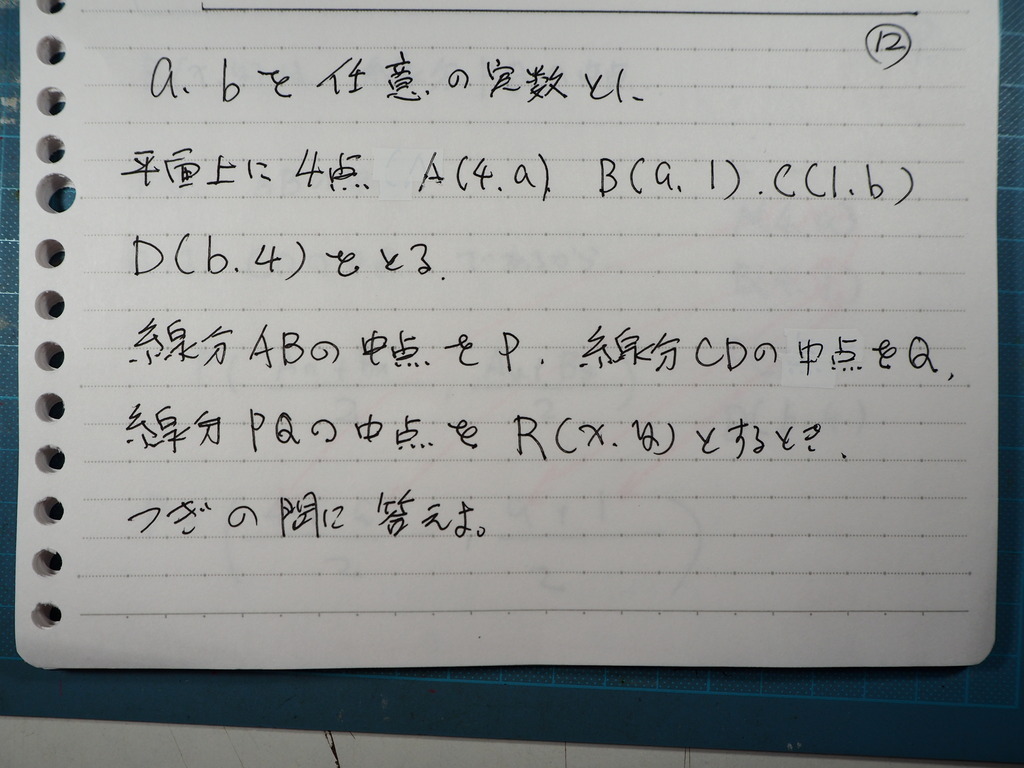 ⑫
a. bを任意の定数とし、
平面上に4点 A(4.a) B(a. 1). C(1.b)
D(b.4)をとる.
線分ABの中点をP. 線分CDの中点をQ,
線分PQの中点を R(x.y)とするとき、
つぎの問に答えよ。